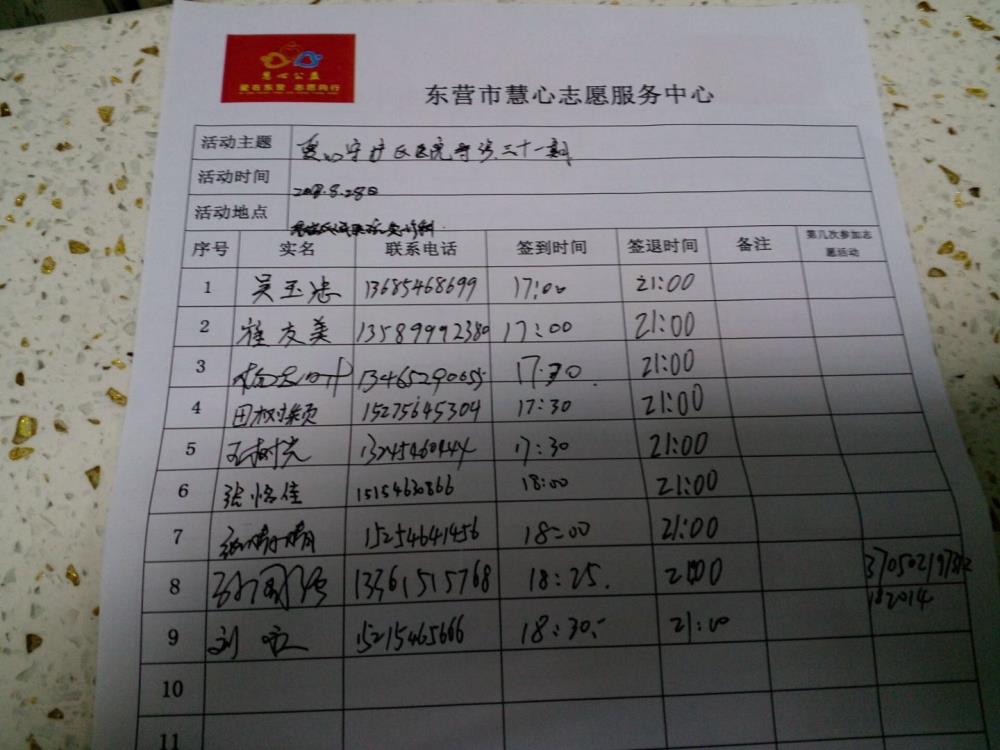 慧心公益
爱在东营 志愿同行
东营市慧心志愿服务中心
活动主题 民医院 三十一期
活动时间 2018.8.28日
活动地点
序号 实名 联系电话 签到时间 签退时间 备注 第几次参加志愿活动
1 吴玉忠 13685468699 17:00 21:00
2 程友美 13589992380 17:00 21:00
3 13465290655 17:30 21:00
4 田树桢 15275645304 17:30 21:00
5 王树光 17:30 21:00
6 张恪佳 15154630866 18:00 21:00
7 张晴晴 15254641456 18:00 21:00
8 孙国强 13361515768 18:25. 2100
9 刘 15215465666 18:30 21:00
10
11